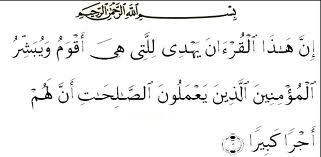 بِسْمِ ٱللَّهِ ٱلرَّحْمَٰنِ ٱلرَّحِيمِ
إِنَّ هَٰذَا ٱلْقُرْءَانَ يَهْدِى لِلَّتِى هِىَ أَقْوَمُ وَيُبَشِّرُ
ٱلْمُؤْمِنِينَ ٱلَّذِينَ يَعْمَلُونَ ٱلصَّٰلِحَٰتِ أَنَّ لَهُمْ
أَجْرًا كَبِيرًا